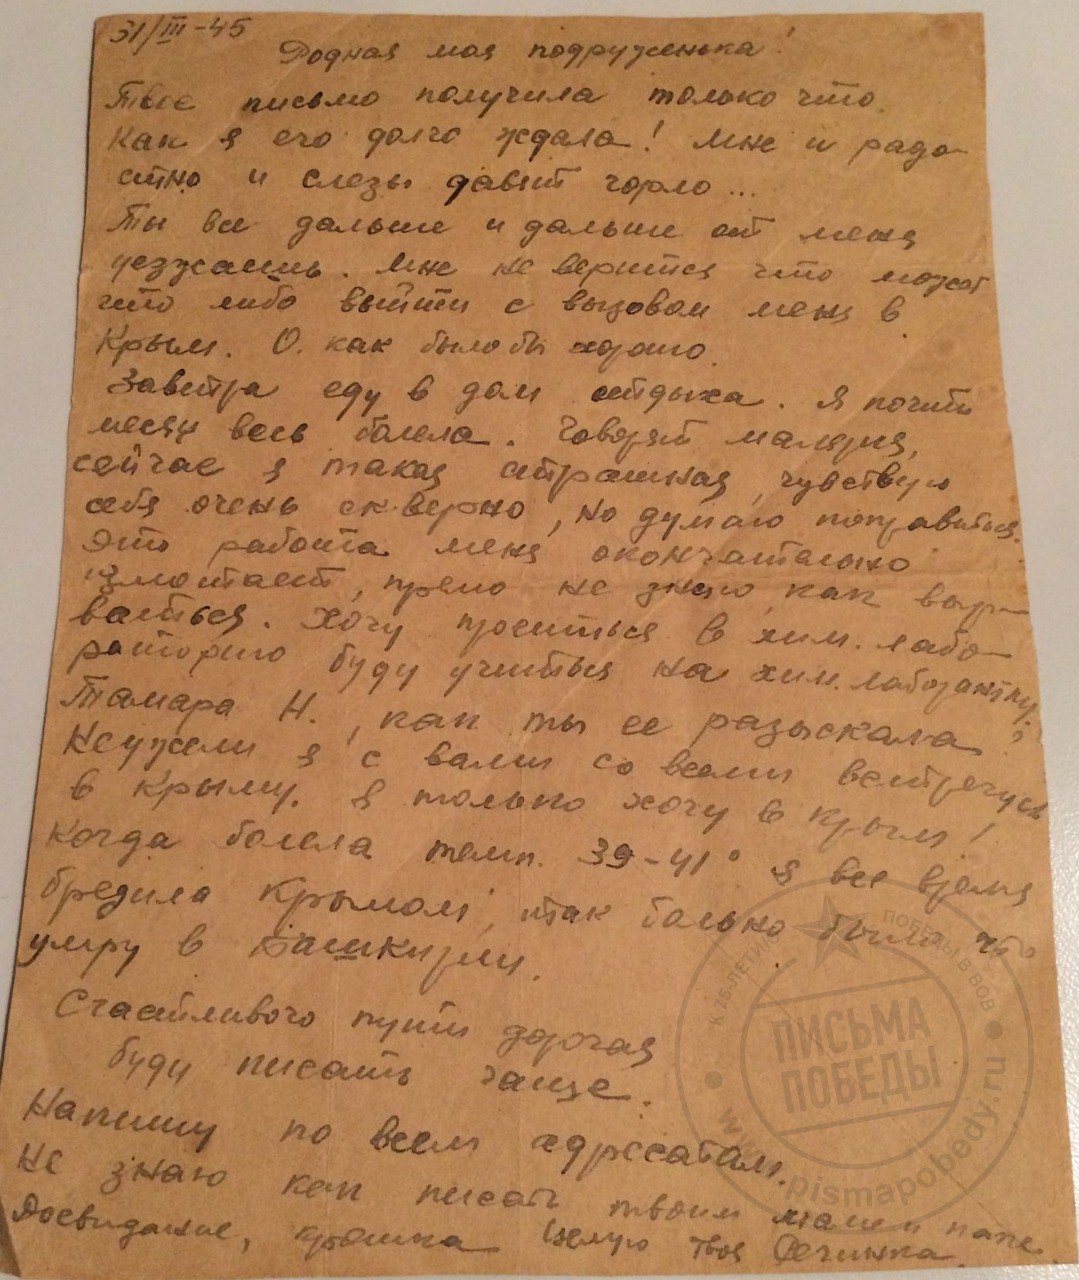 31/III-45
Родная моя подруженька!
Твоё письмо получила только что.
Как я его долго ждала! Мне и радо-
стно и слезы давят горло...
Ты все дальше и дальше от меня
уезжаешь. Мне не верится что может
что либо выйти с вызовом меня в
Крым. О. как было бы хорошо.
Завтра еду в дом отдыха. Я почти
месяц весь болела. Говорят малярия,
сейчас я такая страшная, чувствую
себя очень скверно, но думаю поправиться.
Это работа меня окончательно
измотает, прямо не знаю, как выр-
ваться. Хочу проситься в хим. лабо-
раторию буду учиться на хим. лаборантку.
Тамара Н., как ты ее разыскала?
Неужели я с вами со всеми встречусь
в Крыму. Я только хочу в Крым!
Когда болела темп. 39-41° я все время
бредила Крымом, так больно было что
умру в Башкирии.
Счастливого пути дорогая
буду писать чаще.
Напишу по всем адресатам.
Не знаю как писать твоим маме и папе.
Досвидание, крошка Целую твоя
К 75-ЛЕТИЮ ПОБЕДЫ В ВОВ
ПИСЬМА
ПОБЕДЫ
www.pismapobedy.ru